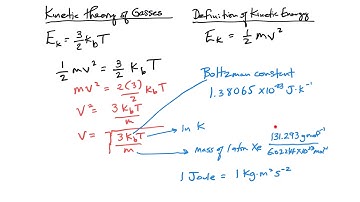 Kinetic theory of Gasses
E_k = 3/2 k_b T
1/2 mv² = 3/2 k_b T
mv² = 2(3)/2 k_b T
v² = 3 k_b T/m
v = √(3 k_b T/m)
Definition of Kinetic Energy
E_k = 1/2 mv²
Boltzman constant
1.38065 x10⁻²³ J·k⁻¹
in K
mass of 1 atom Xe 131.293 g mol⁻¹/6.02214x10²³ mol⁻¹
1 Joule = 1 Kg·m² s⁻²